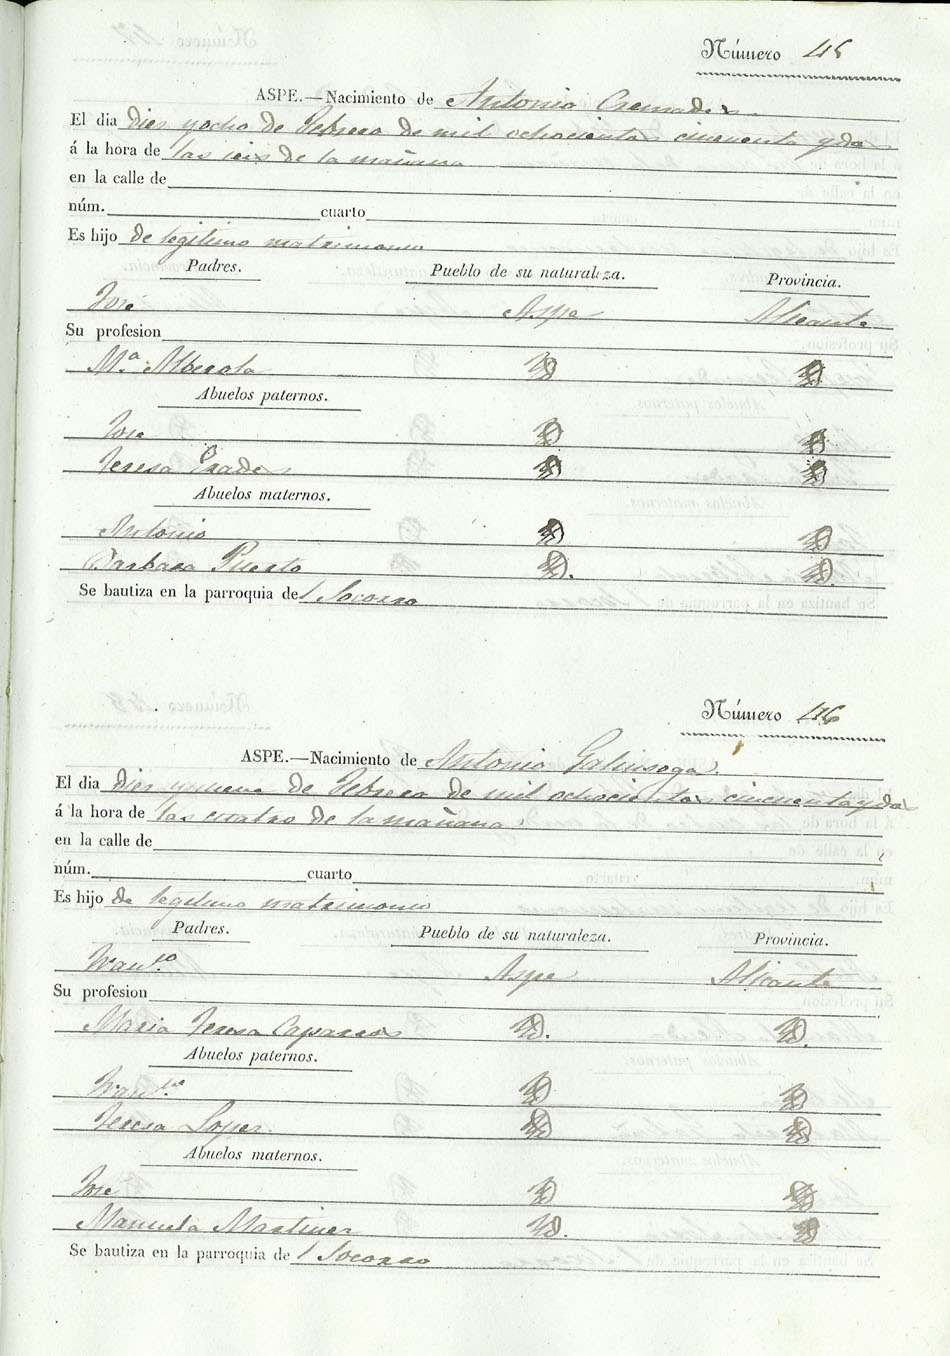 Número 45
ASPE.—Nacimiento de Antonio Cremades.
El dia diez y ocho de Febrero de mil ochocientos cincuenta y dos
á la hora de las seis de la mañana
en la calle de
núm. cuarto
Es hijo de legitimo matrimonio
Padres. Pueblo de su naturaleza. Provincia.
Jose Aspe Alicante
Su profesion
Mª Alberola
Abuelos paternos.
Jose
Teresa Prades
Abuelos maternos.
Antonio
Barbara Puerto
Se bautiza en la parroquia de l Socorro
Número 46
ASPE.—Nacimiento de Antonio Galinsoga.
El dia diez y nueve de Febrero de mil ochocientos cincuenta y dos
á la hora de las cuatro de la mañana
en la calle de
núm. cuarto
Es hijo de legitimo matrimonio
Padres. Pueblo de su naturaleza. Provincia.
Franco Aspe Alicante
Su profesion
Maria Teresa Caparros
Abuelos paternos.
Franco
Teresa Lopez.
Abuelos maternos.
Jose
Manuela Martinez
Se bautiza en la parroquia de l Socorro